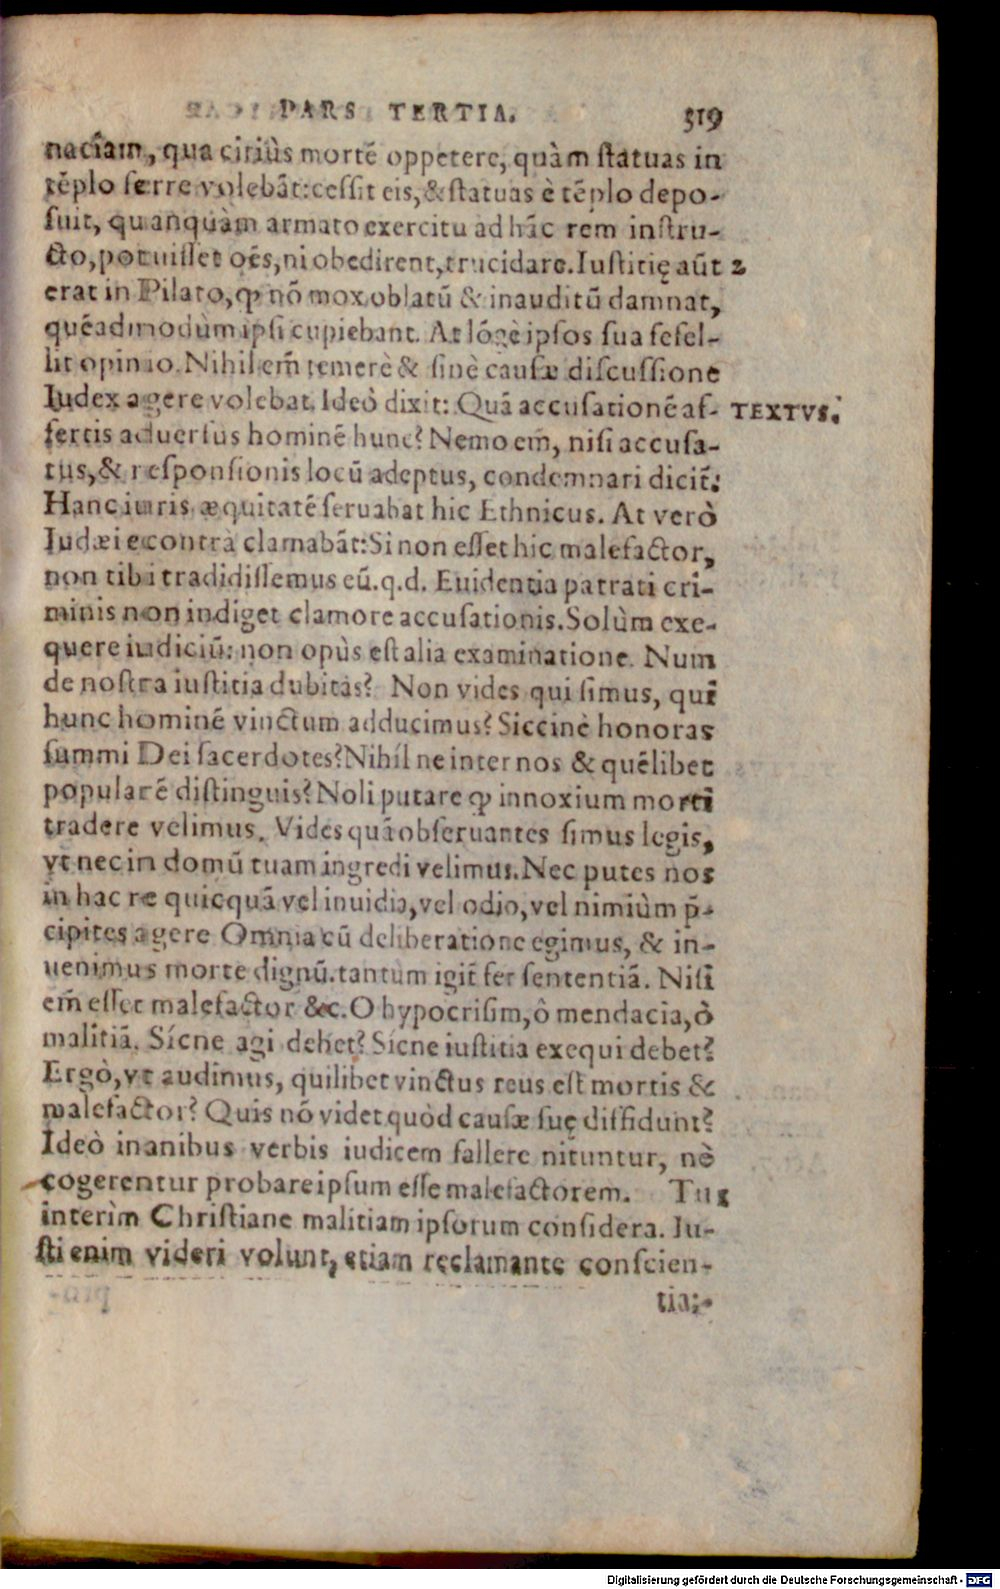 PARS TERTIA. 519
naciam, qua citiùs mortē oppetere, quàm statuas in
tēplo ferre volebāt: cessit eis, & statuas è tēplo depo-
suit, quanquàm armato exercitu ad hāc rem instru-
cto, potuisset oēs, ni obedirent, trucidare. Iustitię aūt 2
erat in Pilato, ꝙ nō mox oblatū & inauditū damnat,
quēadmodùm ipsi cupiebant. At lōgè ipsos sua fefel-
lit opinio. Nihil em̄ temerè & sinè causæ discussione
Iudex agere volebat. Ideò dixit: Quā accusationē af- TEXTVS.
fertis aduersus hominē hunc? Nemo em̄, nisi accusa-
tus, & responsionis locū adeptus, condemnari dicit̄:
Hanc iuris æquitatē seruabat hic Ethnicus. At verò
Iudæi econtrà clamabāt: Si non esset hic malefactor,
non tibi tradidissemus eū. q.d. Euidentia patrati cri-
minis non indiget clamore accusationis. Solùm exe-
quere iudiciū: non opùs est alia examinatione. Num
de nostra iustitia dubitas? Non vides qui simus, qui
hunc hominē vinctum adducimus? Siccinè honoras
summi Dei sacerdotes? Nihíl ne inter nos & quēlibet
popularē distinguis? Noli putare ꝙ innoxium morti
tradere velimus. Vides quā obseruantes simus legis,
vt nec in domū tuam ingredi velimus. Nec putes nos
in hac re quicquā vel inuidia, vel odio, vel nimiùm p̄-
cipites agere Omnia cū deliberatione egimus, & in-
uenimus morte dignū. tantùm igit̄ fer sententiā. Nisi
em̄ esset malefactor &c. O hypocrisim, ô mendacia, ò
malitiā. Sícne agi debet? Sícne iustitia exequi debet?
Ergò, vt audimus, quilibet vinctus reus est mortis &
malefactor? Quis nō videt quòd causæ suę diffidunt?
Ideò inanibus verbis iudicem fallere nituntur, nè
cogerentur probare ipsum esse malefactorem. Tu
interìm Christiane malitiam ipsorum considera. Iu-
sti enim videri volunt, etiam reclamante conscien-
tia:
Digitalisierung gefördert durch die Deutsche Forschungsgemeinschaft - DFG